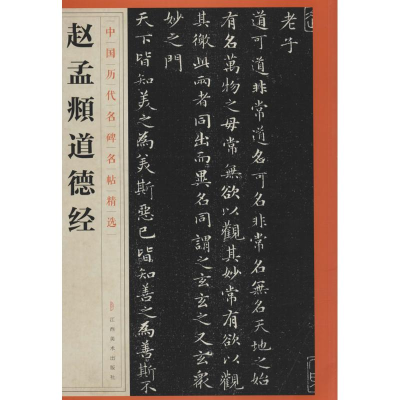 赵孟頫道德经
中国历代名碑名帖精选
江西美术出版社
老子
道可道非常道名可名非常名無名天地之始
有名萬物之母常無欲以觀其妙常有欲以觀
其徼此兩者同出而異名同謂之玄玄之又玄衆
妙之門
天下皆知美之為美斯惡已皆知善之為善斯不